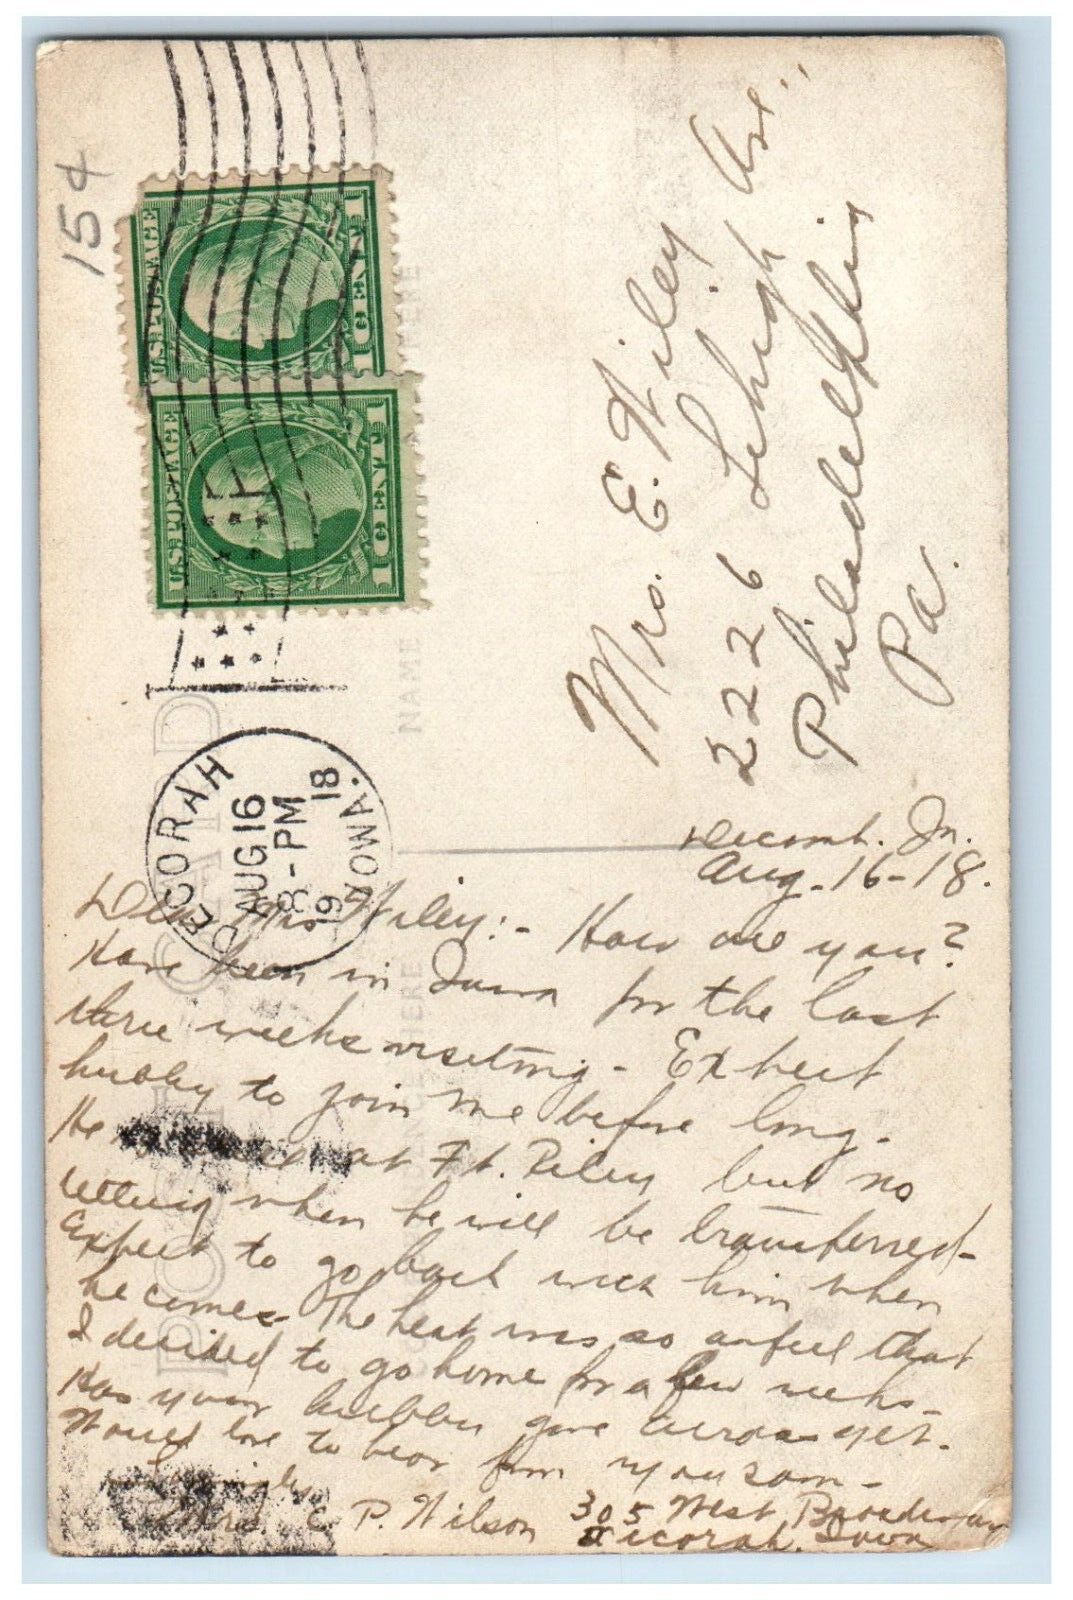 15¢
U.S. POSTAGE
1 CENT 1
U.S. POSTAGE
1 CENT 1
DECORAH
AUG 16
8-PM
1918
IOWA.
POST CARD
NAME
HERE
Mrs. E. Wiley
2226 Lehigh Ave"
Philadelphia
Pa.
Decorah. Ia.
Aug-16-18.
Dear Mrs Wiley:- How are you?
Have been in Iowa for the last
three weeks visiting - Expect
hubby to join me before long -
He at Ft. Riley but no
when he will be transferred -
Expect to go back with him when
he comes - The heat was so awful that
I decided to go home for a few weeks -
Has your hubby gone across yet.
Would love to hear from you soon -
Mrs. E. P. Wilson 305 West Broadway
Decorah, Iowa